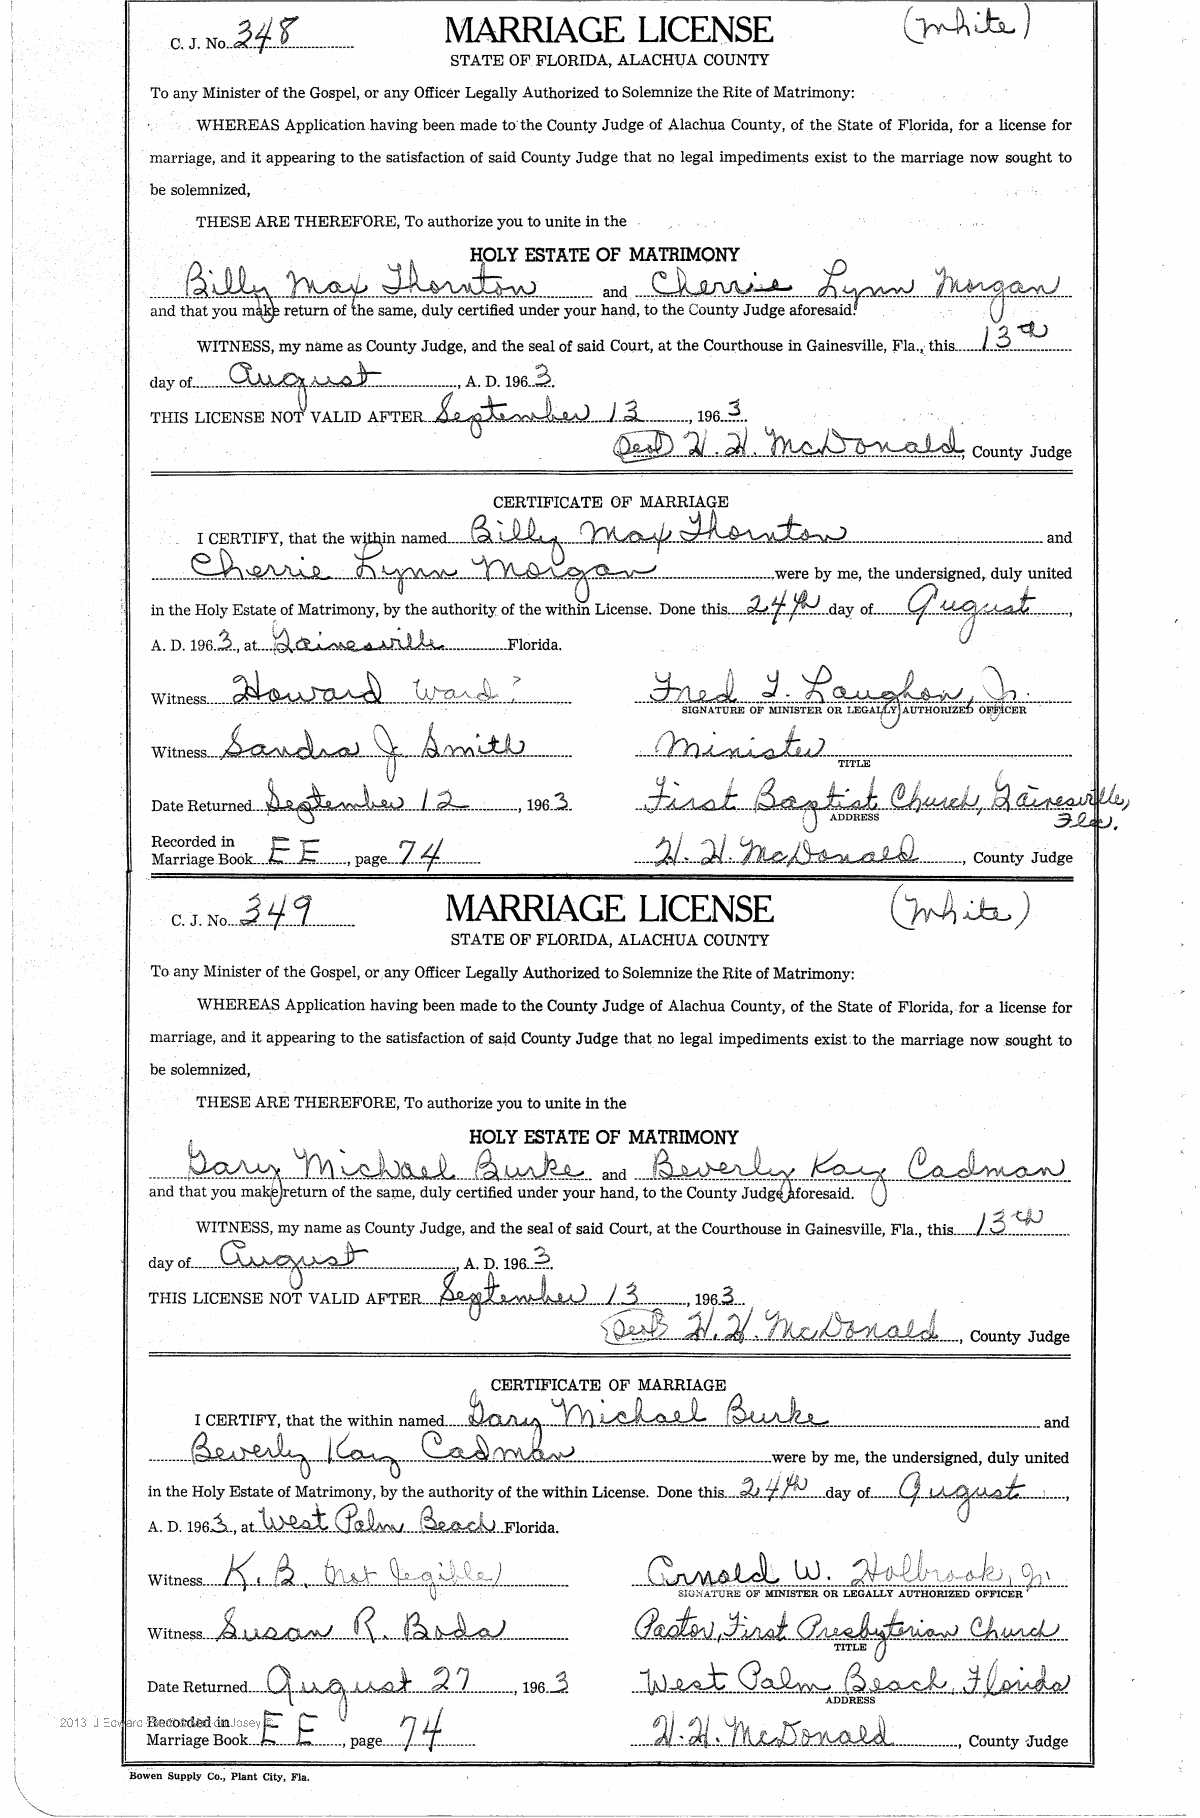 C. J. No. 348
MARRIAGE LICENSE
(White)
STATE OF FLORIDA, ALACHUA COUNTY
To any Minister of the Gospel, or any Officer Legally Authorized to Solemnize the Rite of Matrimony:
WHEREAS Application having been made to the County Judge of Alachua County, of the State of Florida, for a license for
marriage, and it appearing to the satisfaction of said County Judge that no legal impediments exist to the marriage now sought to
be solemnized,
THESE ARE THEREFORE, To authorize you to unite in the
HOLY ESTATE OF MATRIMONY
Billy Max Thornton and Cherrie Lynn Morgan
and that you make return of the same, duly certified under your hand, to the County Judge aforesaid.
WITNESS, my name as County Judge, and the seal of said Court, at the Courthouse in Gainesville, Fla., this 13th
day of August, A. D. 1963.
THIS LICENSE NOT VALID AFTER September 13, 1963
(Seal) H. H. McDonald, County Judge
CERTIFICATE OF MARRIAGE
I CERTIFY, that the within named Billy Max Thornton and
Cherrie Lynn Morgan were by me, the undersigned, duly united
in the Holy Estate of Matrimony, by the authority of the within License. Done this 24th day of August,
A. D. 1963, at Gainesville Florida.
Witness Howard Ward? Fred T. Laughon, Jr.
SIGNATURE OF MINISTER OR LEGALLY AUTHORIZED OFFICER
Witness Sandra J. Smith Minister
TITLE
Date Returned September 12, 1963 First Baptist Church, Gainesville, Fla.
ADDRESS
Recorded in
Marriage Book EE, page 74 H. H. McDonald, County Judge
C. J. No. 349
MARRIAGE LICENSE
(White)
STATE OF FLORIDA, ALACHUA COUNTY
To any Minister of the Gospel, or any Officer Legally Authorized to Solemnize the Rite of Matrimony:
WHEREAS Application having been made to the County Judge of Alachua County, of the State of Florida, for a license for
marriage, and it appearing to the satisfaction of said County Judge that no legal impediments exist to the marriage now sought to
be solemnized,
THESE ARE THEREFORE, To authorize you to unite in the
HOLY ESTATE OF MATRIMONY
Gary Michael Burke and Beverly Kay Cadman
and that you make return of the same, duly certified under your hand, to the County Judge aforesaid.
WITNESS, my name as County Judge, and the seal of said Court, at the Courthouse in Gainesville, Fla., this 13th
day of August, A. D. 1963.
THIS LICENSE NOT VALID AFTER September 13, 1963
(Seal) H. H. McDonald, County Judge
CERTIFICATE OF MARRIAGE
I CERTIFY, that the within named Gary Michael Burke and
Beverly Kay Cadman were by me, the undersigned, duly united
in the Holy Estate of Matrimony, by the authority of the within License. Done this 24th day of August,
A. D. 1963, at West Palm Beach Florida.
Witness K. B. (not legible) Arnold W. Holbrook, Jr.
SIGNATURE OF MINISTER OR LEGALLY AUTHORIZED OFFICER
Witness Susan R. Boda Pastor, First Presbyterian Church
TITLE
Date Returned August 27, 1963 West Palm Beach, Florida
ADDRESS
2013 J Edward
Recorded in
Josey
Marriage Book EE, page 74 H. H. McDonald, County Judge
Bowen Supply Co., Plant City, Fla.